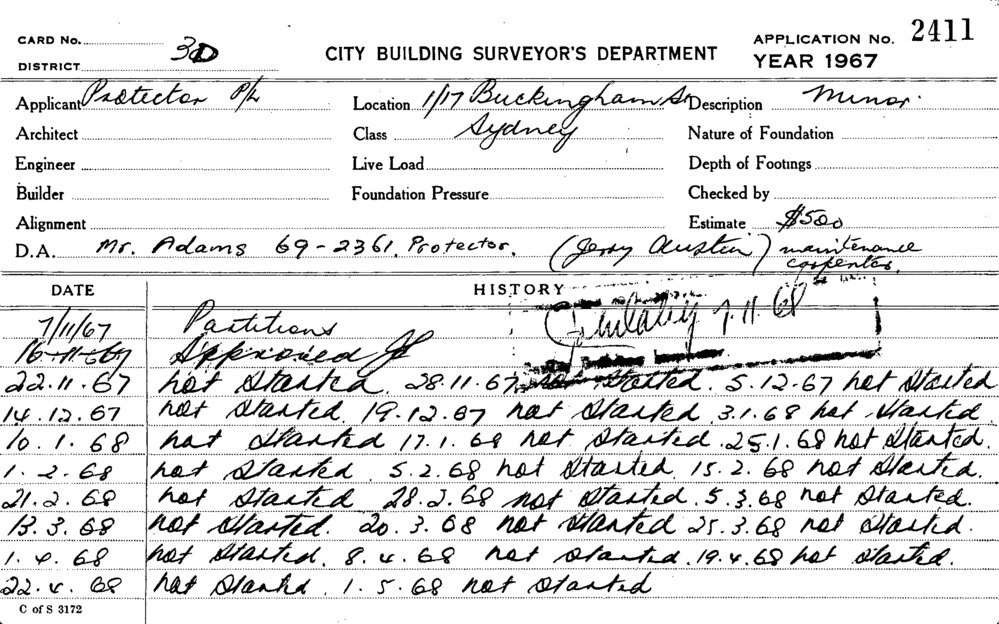 CARD No. 3D
DISTRICT
CITY BUILDING SURVEYOR'S DEPARTMENT
APPLICATION No. 2411
YEAR 1967
Applicant Protector P/L Location 1/17 Buckingham St Description Minor.
Architect Class Sydney Nature of Foundation
Engineer Live Load Depth of Footings
Builder Foundation Pressure Checked by
Alignment Estimate $500
D.A. Mr. Adams 69-2361. Protector. (Jerry Austin) maintenance
carpenter.
DATE HISTORY
7/11/67 Partitions 7.11.68
16-11-67 Approved
22.11.67 not started. 28.11.67 not started. 5.12.67 not started
14.12.67 not started. 19.12.67 not started 3.1.68 not started
10.1.68 not started 17.1.68 not started. 25.1.68 not started.
1.2.68 not started. 5.2.68 not started. 15.2.68 not started.
21.2.68 not started 28.2.68 not started. 5.3.68 not started.
13.3.68 not started. 20.3.68 not started 25.3.68 not started.
1.4.68 not started. 8.4.68 not started. 19.4.68 not started.
22.4.68 not started. 1.5.68 not started
C of S 3172